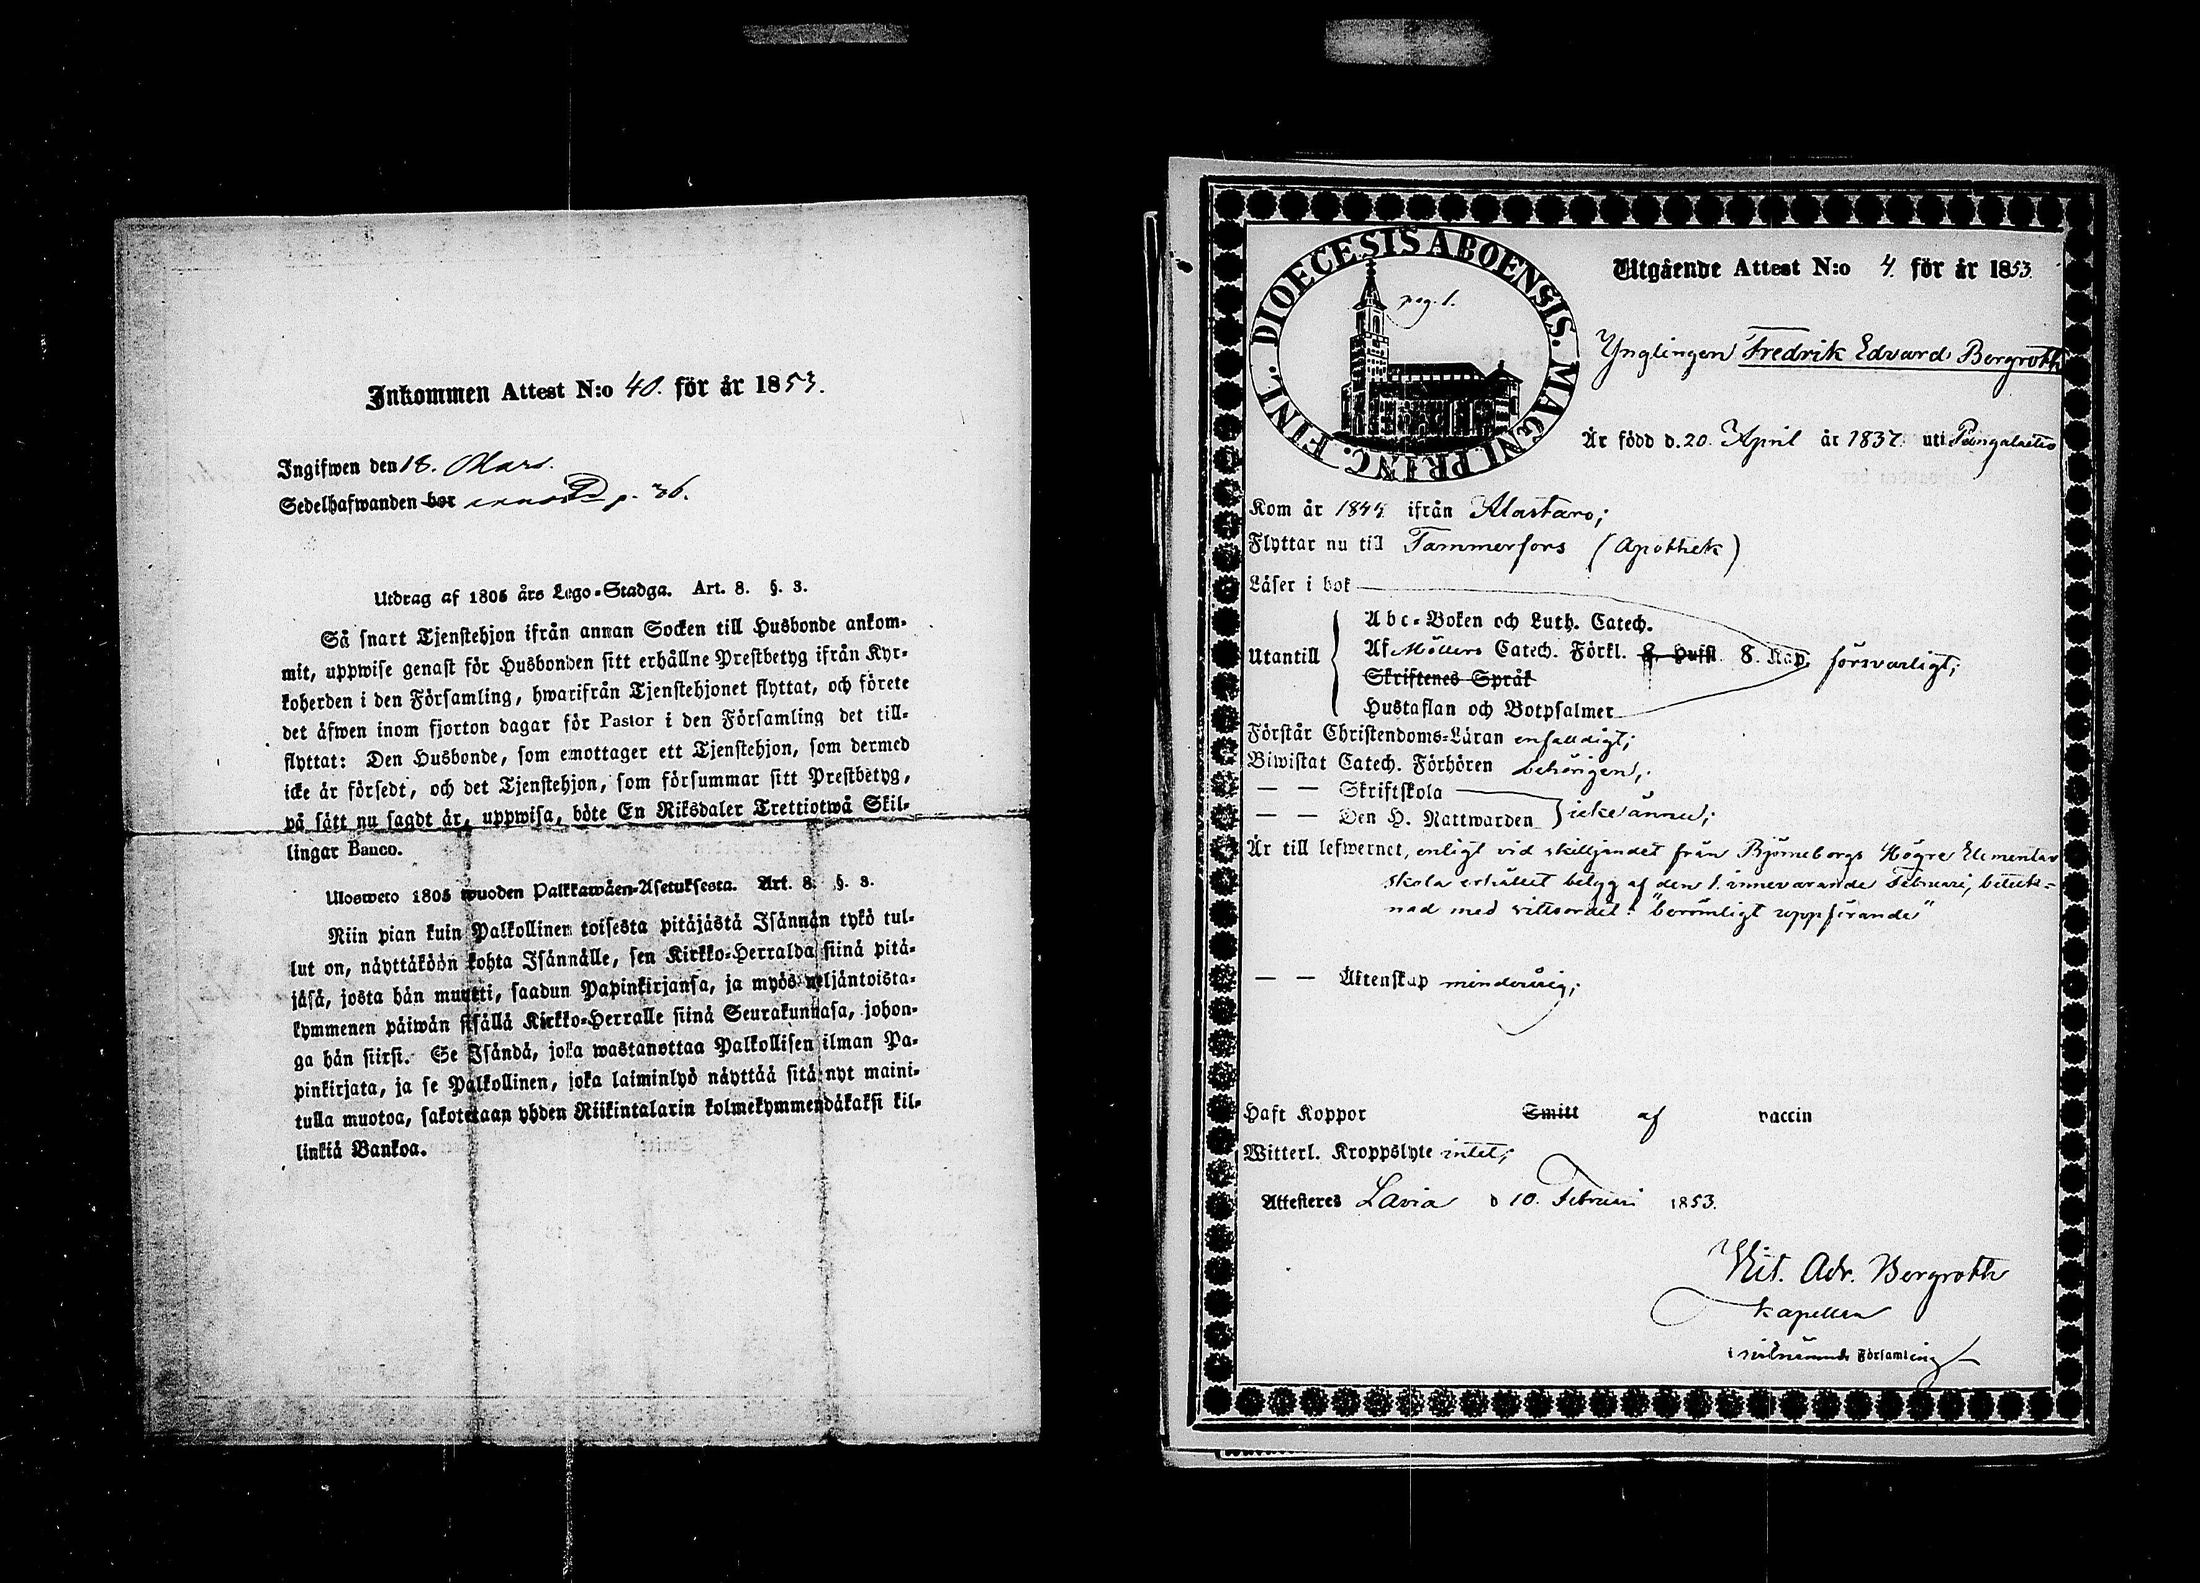 Inkommen Attest N:o 40. för år 1853.
Ingifwen den 18. Mars.
Sedelhafwanden bor p. 36.
Utdrag af 1805 års Lego-Stadga. Art. 8. §. 3.
Så snart Tjenstehjon ifrån annan Socken till Husbonde ankom-
mit, uppwise genast för Husbonden sitt erhållne Prestbetyg ifrån Kyr-
koherden i den Församling, hwarifrån Tjenstehjonet flyttat, och förete
det äfwen inom fjorton dagar för Pastor i den Församling det till-
flyttat: Den Husbonde, som emottager ett Tjenstehjon, som dermed
icke är försedt, och det Tjenstehjon, som försummar sitt Prestbetyg,
på sätt nu sagdt är, uppwisa, böte En Riksdaler Trettiotwå Skil-
lingar Banco.
Ulosweto 1805 wuoden Palkkawäen-Asetuksesta. Art. 8. §. 3.
Niin pian kuin Palkollinen toisesta pitäjästä Isännän tykö tul-
lut on, näyttäköön kohta Isännälle, sen Kirkko-Herralda siinä pitä-
jäsä, josta hän muutti, saadun Papinkirjansa, ja myös neljäntoista-
kymmenen päiwän sisällä Kirkko-Herralle siinä Seurakunnasa, johon-
ga hän siirsi. Se Isändä, joka wastanottaa Palkollisen ilman Pa-
pinkirjata, ja se Palkollinen, joka laiminlyö näyttää sitä nyt maini-
tulla muotoa, sakotetaan yhden Riikintalarin kolmekymmendäkaksi kil-
linkiä Bankoa.
DIOECESIS ABOENSIS. MAGNI PRINC. FINL.
pag. 1.
Utgående Attest N:o 4. för år 1853.
Ynglingen Fredrik Edvard Bergroth
Är född d. 20. April år 1837. uti Pungalaitio
Kom år 1844 ifrån Alastaro;
Flyttar nu till Tammerfors (Apothek)
Läser i bok
Utantill
Abc-Boken och Luth. Catech.
Af Möllers Catech. Förkl. 8. Hufst. 8. Kap. försvarligt;
Skriftenes Språk
Hustaflan och Botpsalmer
Förstår Christendoms-Läran enfaldigt;
Biwistat Catech. Förhören behörigen;
— — Skriftskola
— — Den H. Nattwarden icke ännu;
Är till lefwernet, enligt vid skiljandet från Björneborgs Högre Elementar
skola erhållet betyg af den 1. innevarande Februari, beteck-
nad med vittsordet: "berömligt uppförande"
— — Äktenskap minderårig;
Haft Koppor Smitt af vaccin
Witterl. Kroppslyte intet;
Attesteras Lavia d 10. Februari 1853.
Vit. Adr. Bergroth
Kapellan
i nästnämnde Församling